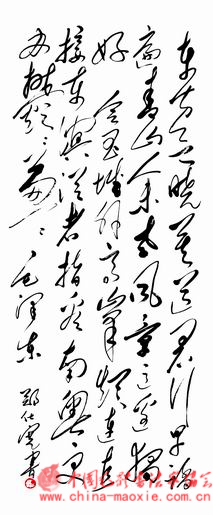 东方欲晓莫道君行早踏
遍青山人未老风景这边独
好 会昌城外高峰颠连直
接东溟战士指看南粤更
加郁郁葱葱 毛泽东
www.china-maoxie.com.cn